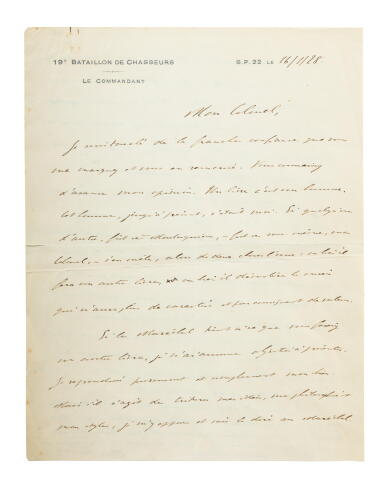 19e BATAILLON DE CHASSEURS
S.P. 22 LE 16/1/28
LE COMMANDANT
Mon Colonel,
Je suis touché de la franche confiance que vous
me marquez et vous en remercie. Vous connaissez
d'avance mon opinion. Un livre c'est un homme.
Cet homme, jusqu'à présent, c'était moi. Si quelqu'un
d'autre, fût-ce Montesquieu, - fût-ce vous-même, mon
Colonel, - s'en mêle, alors de deux choses l'une : ou bien il
fera un autre livre, ou bien il démolira le mien
qui n'aura plus de caractère et par conséquent de valeur.
Si le Maréchal tient à ce que vous fassiez
un autre livre, je n'ai aucune objection à présenter.
Je reprendrai purement et simplement mon livre.
Mais s'il s'agit de triturer mes idées, ma philosophie
mon style, je m'y oppose et vais le dire au Maréchal.